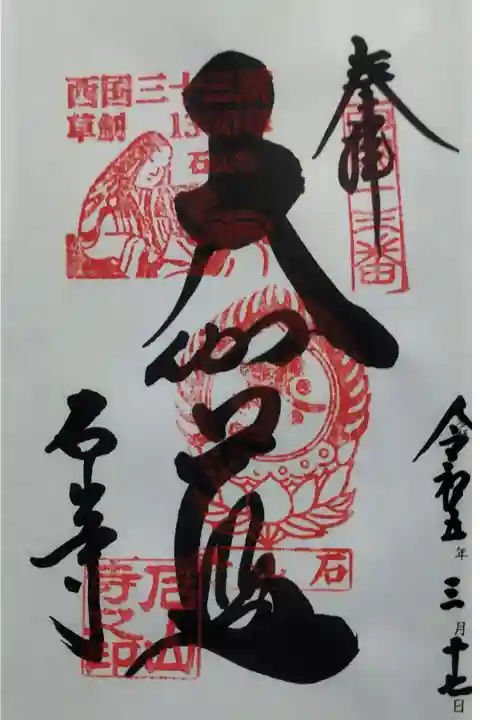 奉拝
西国十三番
令和五年三月十七日
大伽藍
西国三十三所
草創 1300年
石山寺
石
石山寺
石山寺之印